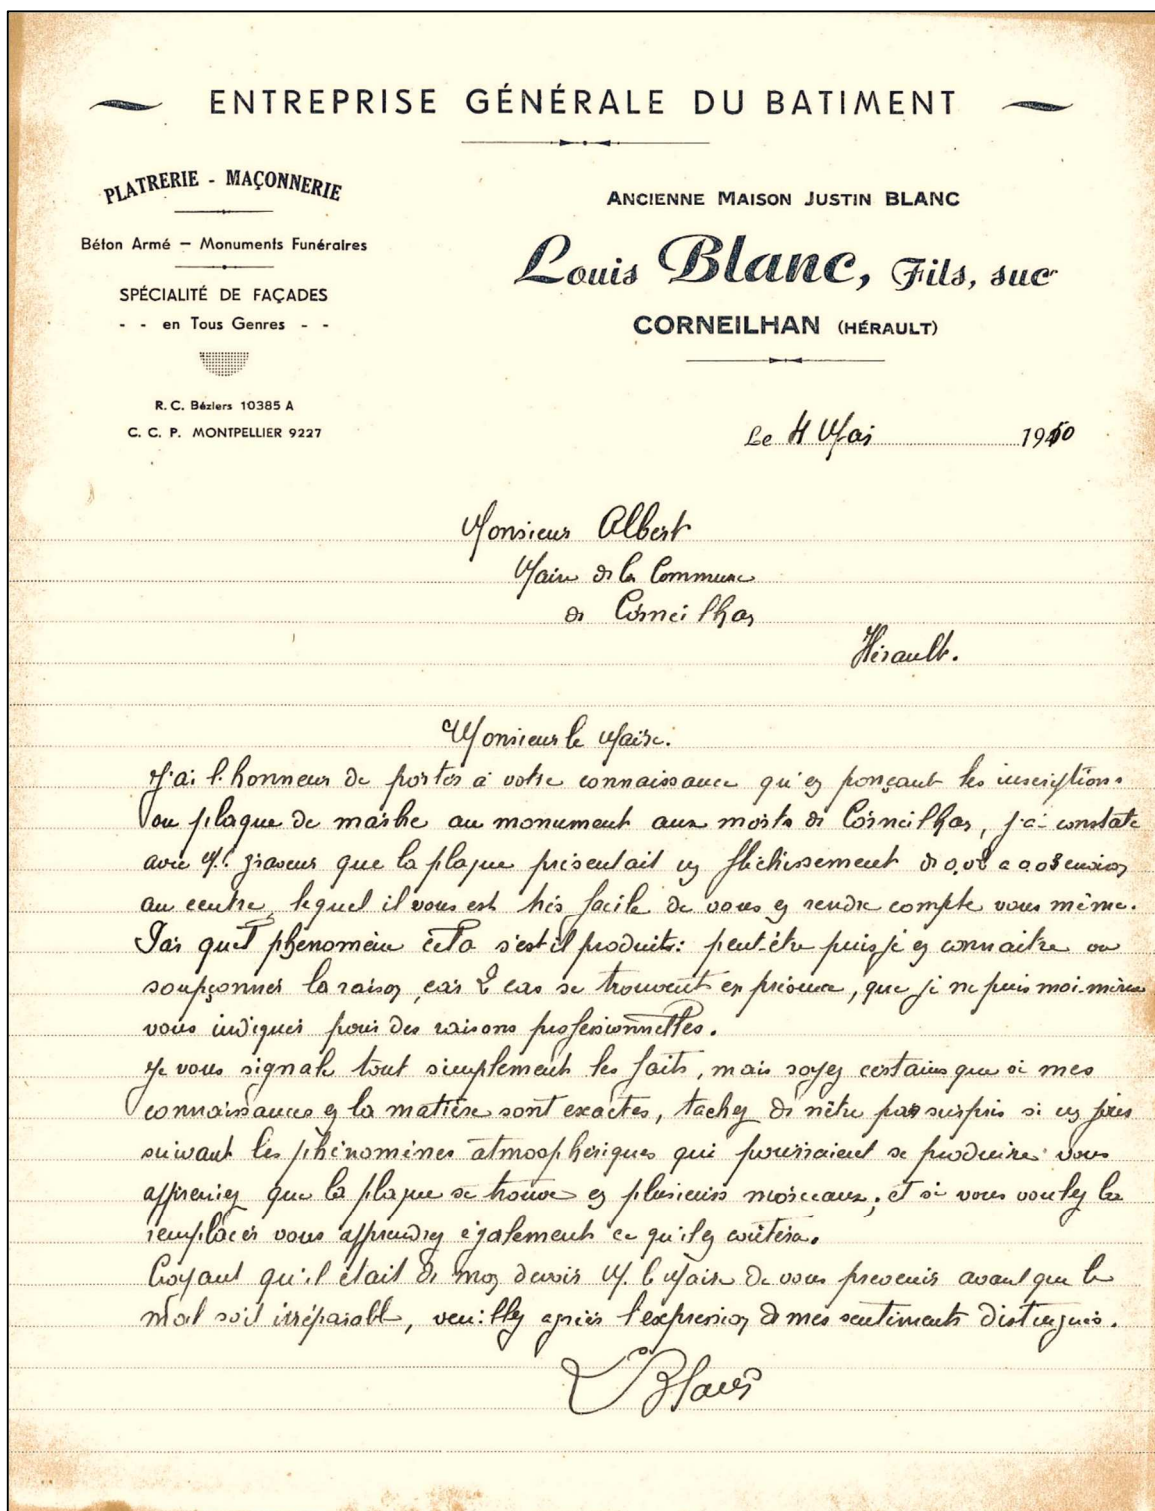 ENTREPRISE GÉNÉRALE DU BATIMENT
PLATRERIE - MAÇONNERIE
Béton Armé – Monuments Funéraires
SPÉCIALITÉ DE FAÇADES
- - en Tous Genres - -
R. C. Béziers 10385 A
C. C. P. MONTPELLIER 9227
ANCIENNE MAISON JUSTIN BLANC
Louis Blanc, Fils, suc
CORNEILHAN (HÉRAULT)
Le 4 Mai 1950
Monsieur Albert
Maire de la Commune
de Corneilhan
Hérault.
Monsieur le Maire.
J'ai l'honneur de porter à votre connaissance qu'en ponçant les inscriptions
ou plaque de marbre au monument aux morts de Corneilhan, j'ai constaté
avec M. l. graveur que la plaque présentait un fléchissement de 0,02 a 0,03 environ
au centre, lequel il vous est très facile de vous en rendre compte vous même.
Par quel phénomène cela s'est il produit: peut-être puis je en connaitre ou
soupçonner la raison, car 2 cas se trouvent en présence, que je ne puis moi-même
vous indiquer pour des raisons professionnelles.
Je vous signale tout simplement les faits, mais soyez certains que si mes
connaissances en la matière sont exactes, tachez de nêtre pas surpris si un jour
suivant les phénomènes atmosphériques qui pourraient se produire vous
appreniez que la plaque se trouve en plusieurs morceaux; et si vous voulez la
remplacer vous apprendrez également ce qu'il en coûtera.
Croyant qu'il était de mon devoir M. le Maire de vous prevenir avant que le
mal soit irréparable, veuillez agréer l'expression de mes sentiments distingués.
L Blanc